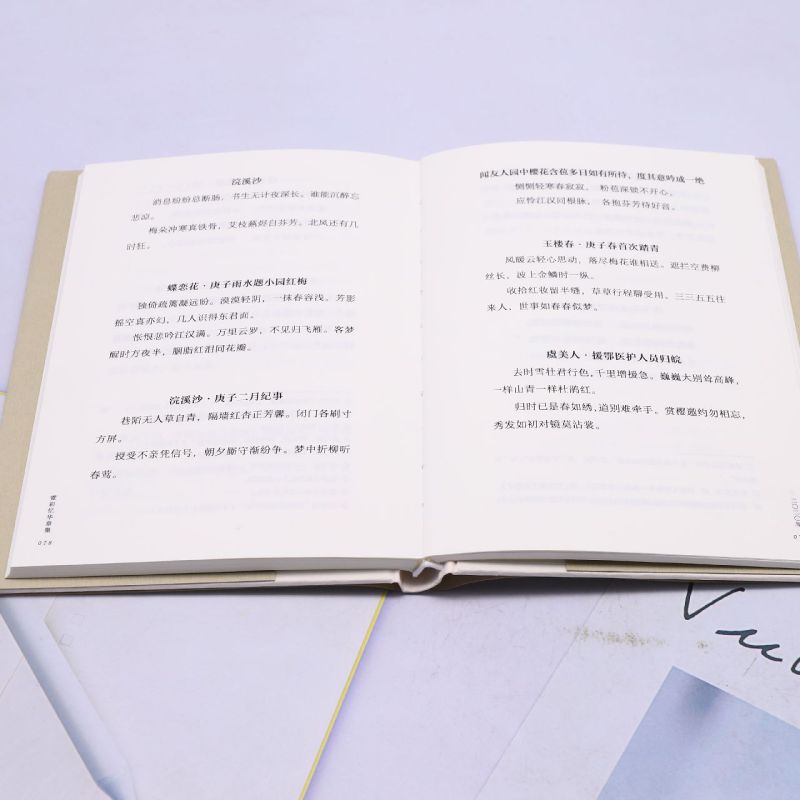 浣溪沙
消息纷纷总断肠。书生无计夜深长。谁能沉醉忘
悲凉。
梅朵冲寒真铁骨，艾枝蘸好自芬芳。北风还有几
时狂。
蝶恋花·庚子雨水题小园红梅
独倚疏篱凝远盼。漠漠轻阴，一抹春容浅。芳影
摇空真亦幻，几人识得东君面。
怅恨悲吟江汉满。万里云罗，不见归飞雁。客梦
醒时方夜半，胭脂红泪同花瓣。
浣溪沙·庚子二月纪事
巷陌无人草自青，隔墙红杏正芳馨。闭门各刷寸
方屏。
授受不亲凭信号，朝夕厮守渐纷争。梦中折柳听
春莺。
078
闻友人园中樱花含苞多日如有所待，度其意吟成一绝
恻恻轻寒春寂寂，粉苞深锁不开心。
应怜江汉同根脉，各抱芬芳待好音。
玉楼春·庚子春首次踏青
风暖云轻心思动，落尽梅花谁相送。遮拦空费柳
丝长，波上金鳞时一纵。
收拾红妆留半缝，草草行程聊受用。三三五五往
来人，世事如春春似梦。
虞美人·援鄂医护人员归皖
去时雪壮君行色，千里增援急。巍巍大别耸高峰，
一样山青一样杜鹃红。
归时已是春如绣，道别难牵手。赏樱邀约勿相忘，
秀发如初对镜莫沾裳。